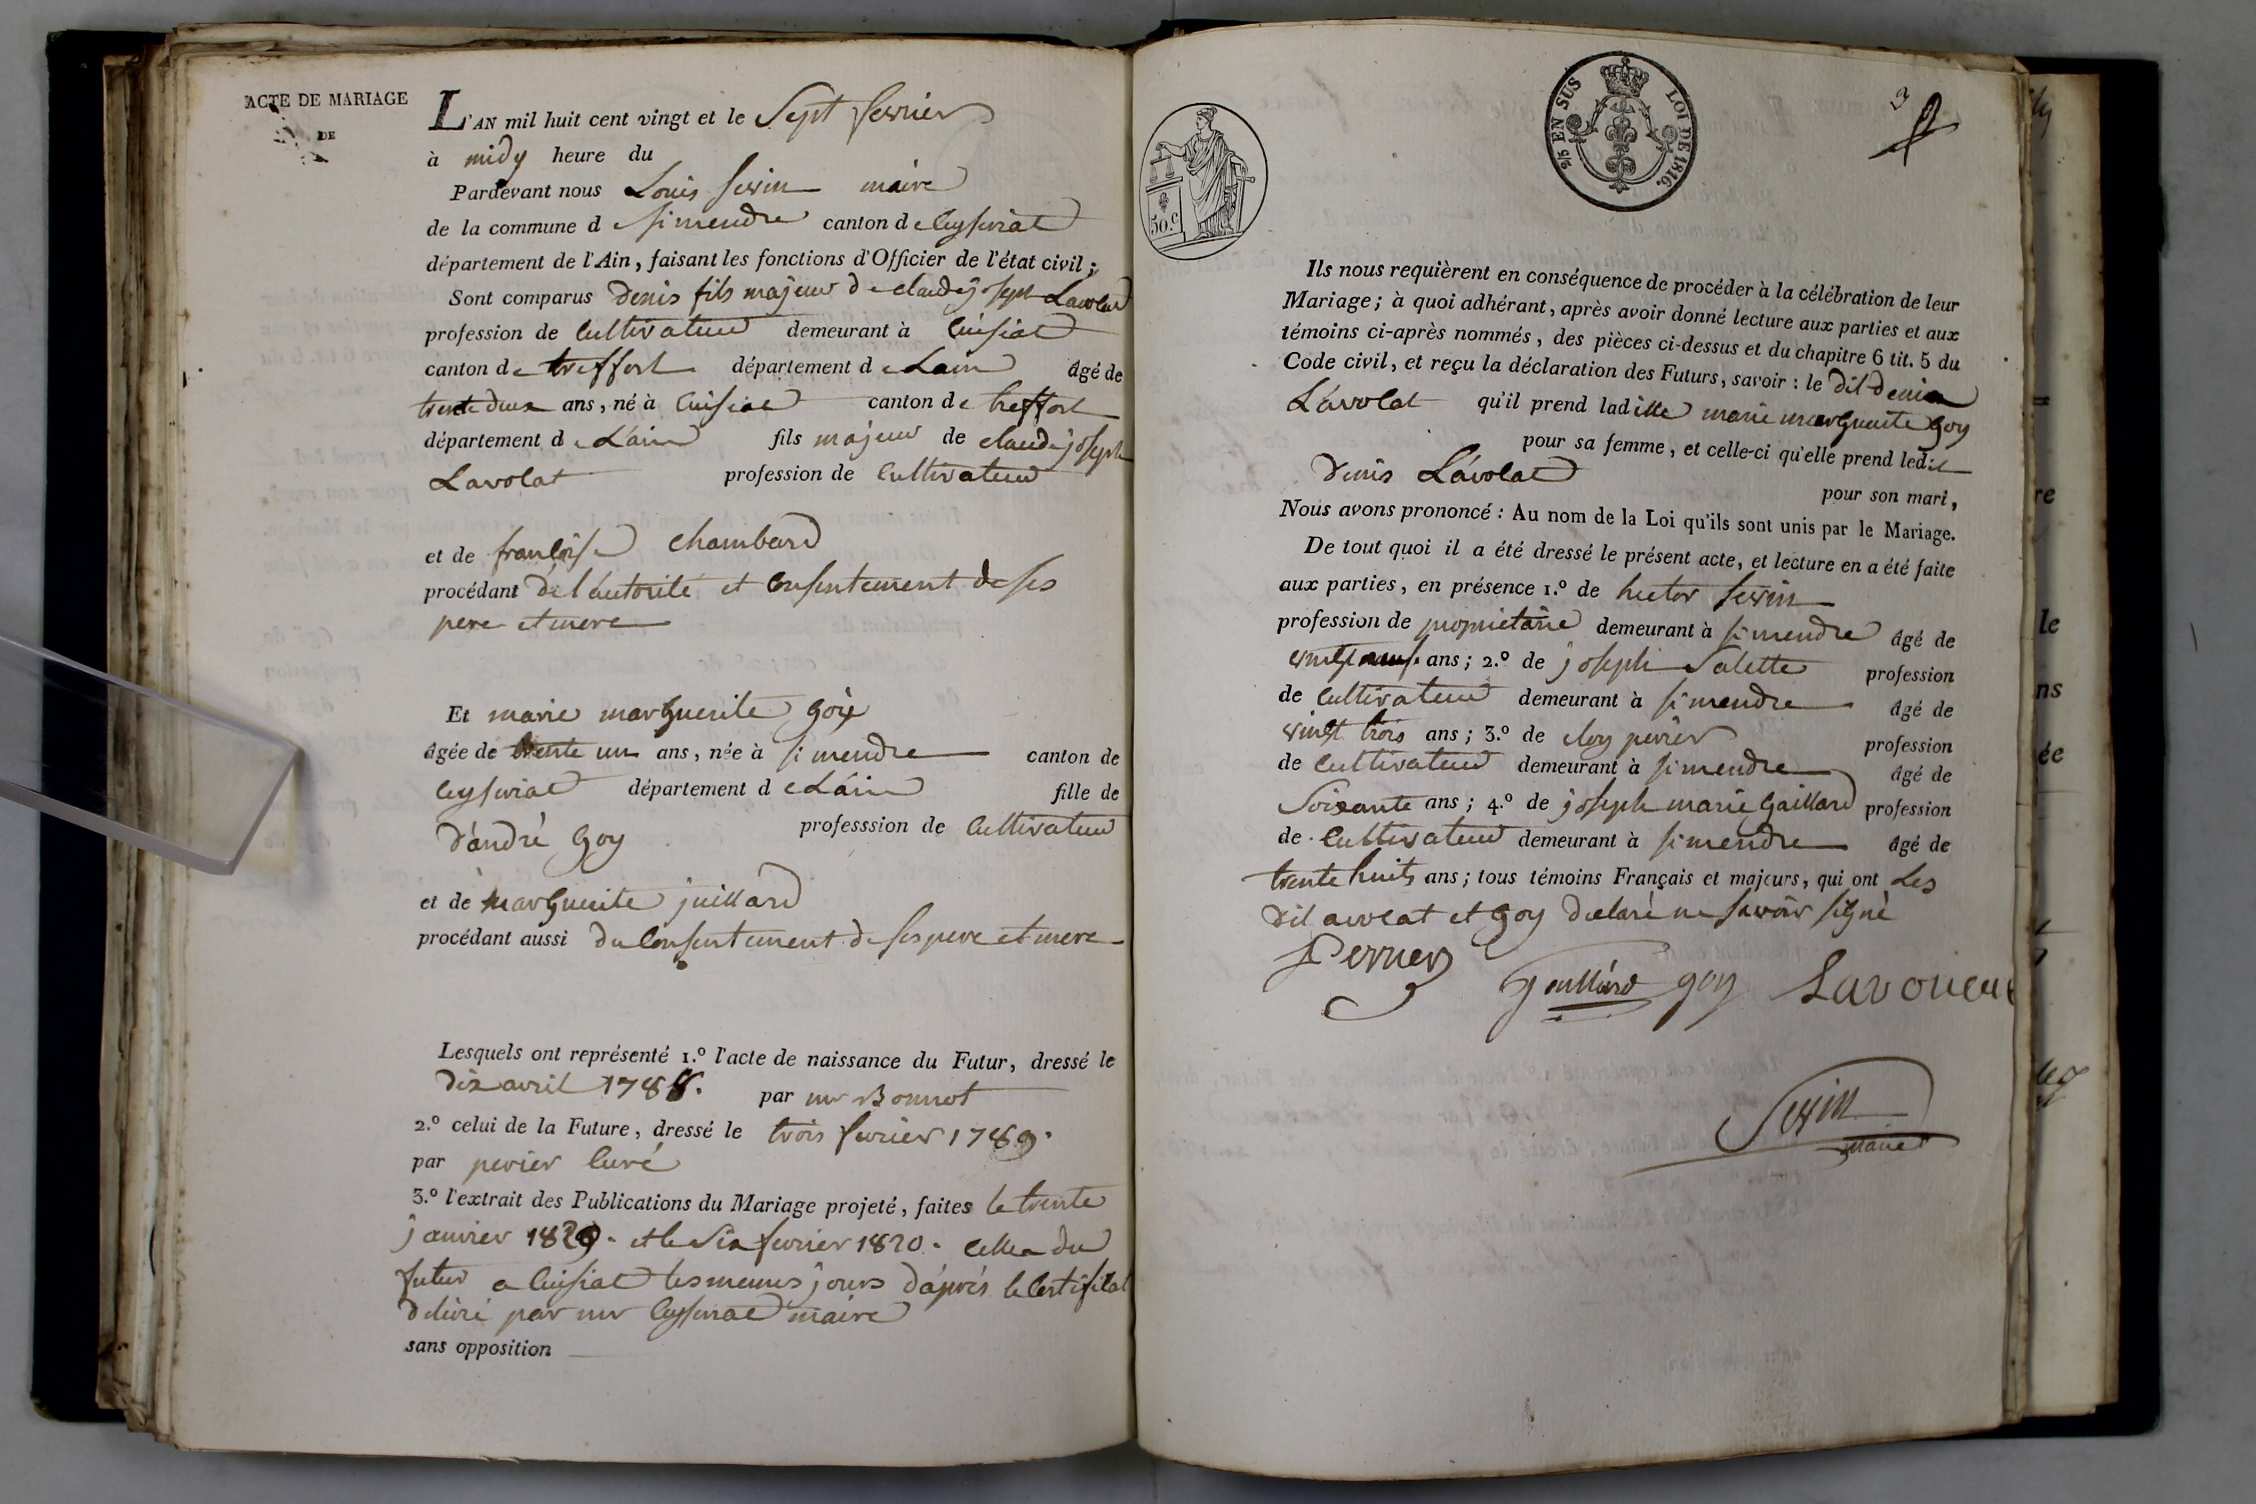 ACTE DE MARIAGE
DE
L'AN mil huit cent vingt et le Sept fevrier
à midy heure du
Pardevant nous Louis fevrin maire
de la commune d e simendre canton d e Ceyseriat
département de l'Ain, faisant les fonctions d'Officier de l'état civil;
Sont comparus Denis fils majeur de claude joseph Lavolat
profession de Cultivateur demeurant à Cuisiat
canton de treffort département d e Lain âgé de
trente deux ans, né à Cuisiat canton de treffort
département d e L'ain fils majeur de claude joseph
Lavolat profession de Cultivateur
et de françoise chambard
procédant de l'autorité et Consentement de ses
pere et mere
Et marie marguerite goÿ
âgée de trente un ans, née à simendre canton de
Ceyseriat département d e L'ain fille de
D'andré goy professsion de Cultivateur
et de marguerite juillard
procédant aussi du Consentement de ses pere et mere
Lesquels ont représenté 1.º l'acte de naissance du Futur, dressé le
dix avril 1788. par mr Bonnot
2.º celui de la Future, dressé le trois fevrier 1789.
par perier Curé
3.º l'extrait des Publications du Mariage projeté, faites le trente
janvier 1820. et le Six fevrier 1820. Celles du
futur a Cuisiat les memes jours d'aprés le Certificat
delivré par mr Ceyseriat maire
sans opposition
50.c
2/5 EN SUS LOI DE 1816.
3
Ils nous requièrent en conséquence de procéder à la célébration de leur
Mariage; à quoi adhérant, après avoir donné lecture aux parties et aux
témoins ci-après nommés, des pièces ci-dessus et du chapitre 6 tit. 5 du
Code civil, et reçu la déclaration des Futurs, savoir : le dit denis
L'avolat qu'il prend laditte marie marguerite goy
pour sa femme, et celle-ci qu'elle prend ledit
Denis L'avolat
pour son mari,
Nous avons prononcé : Au nom de la Loi qu'ils sont unis par le Mariage.
De tout quoi il a été dressé le présent acte, et lecture en a été faite
aux parties, en présence 1.º de hector fevrin
profession de propriétaire demeurant à simendre âgé de
vingt neuf ans; 2.º de joseph Salette profession
de Cultivateur demeurant à simendre âgé de
vingt trois ans; 3.º de eloy perier profession
de Cultivateur demeurant à simendre âgé de
Soixante ans; 4.º de joseph marie gaillard profession
de Cultivateur demeurant à simendre âgé de
trente huit ans; tous témoins Français et majeurs, qui ont Les
dit avolat et goy declaré ne savoir signé
Perrier
goy
maire